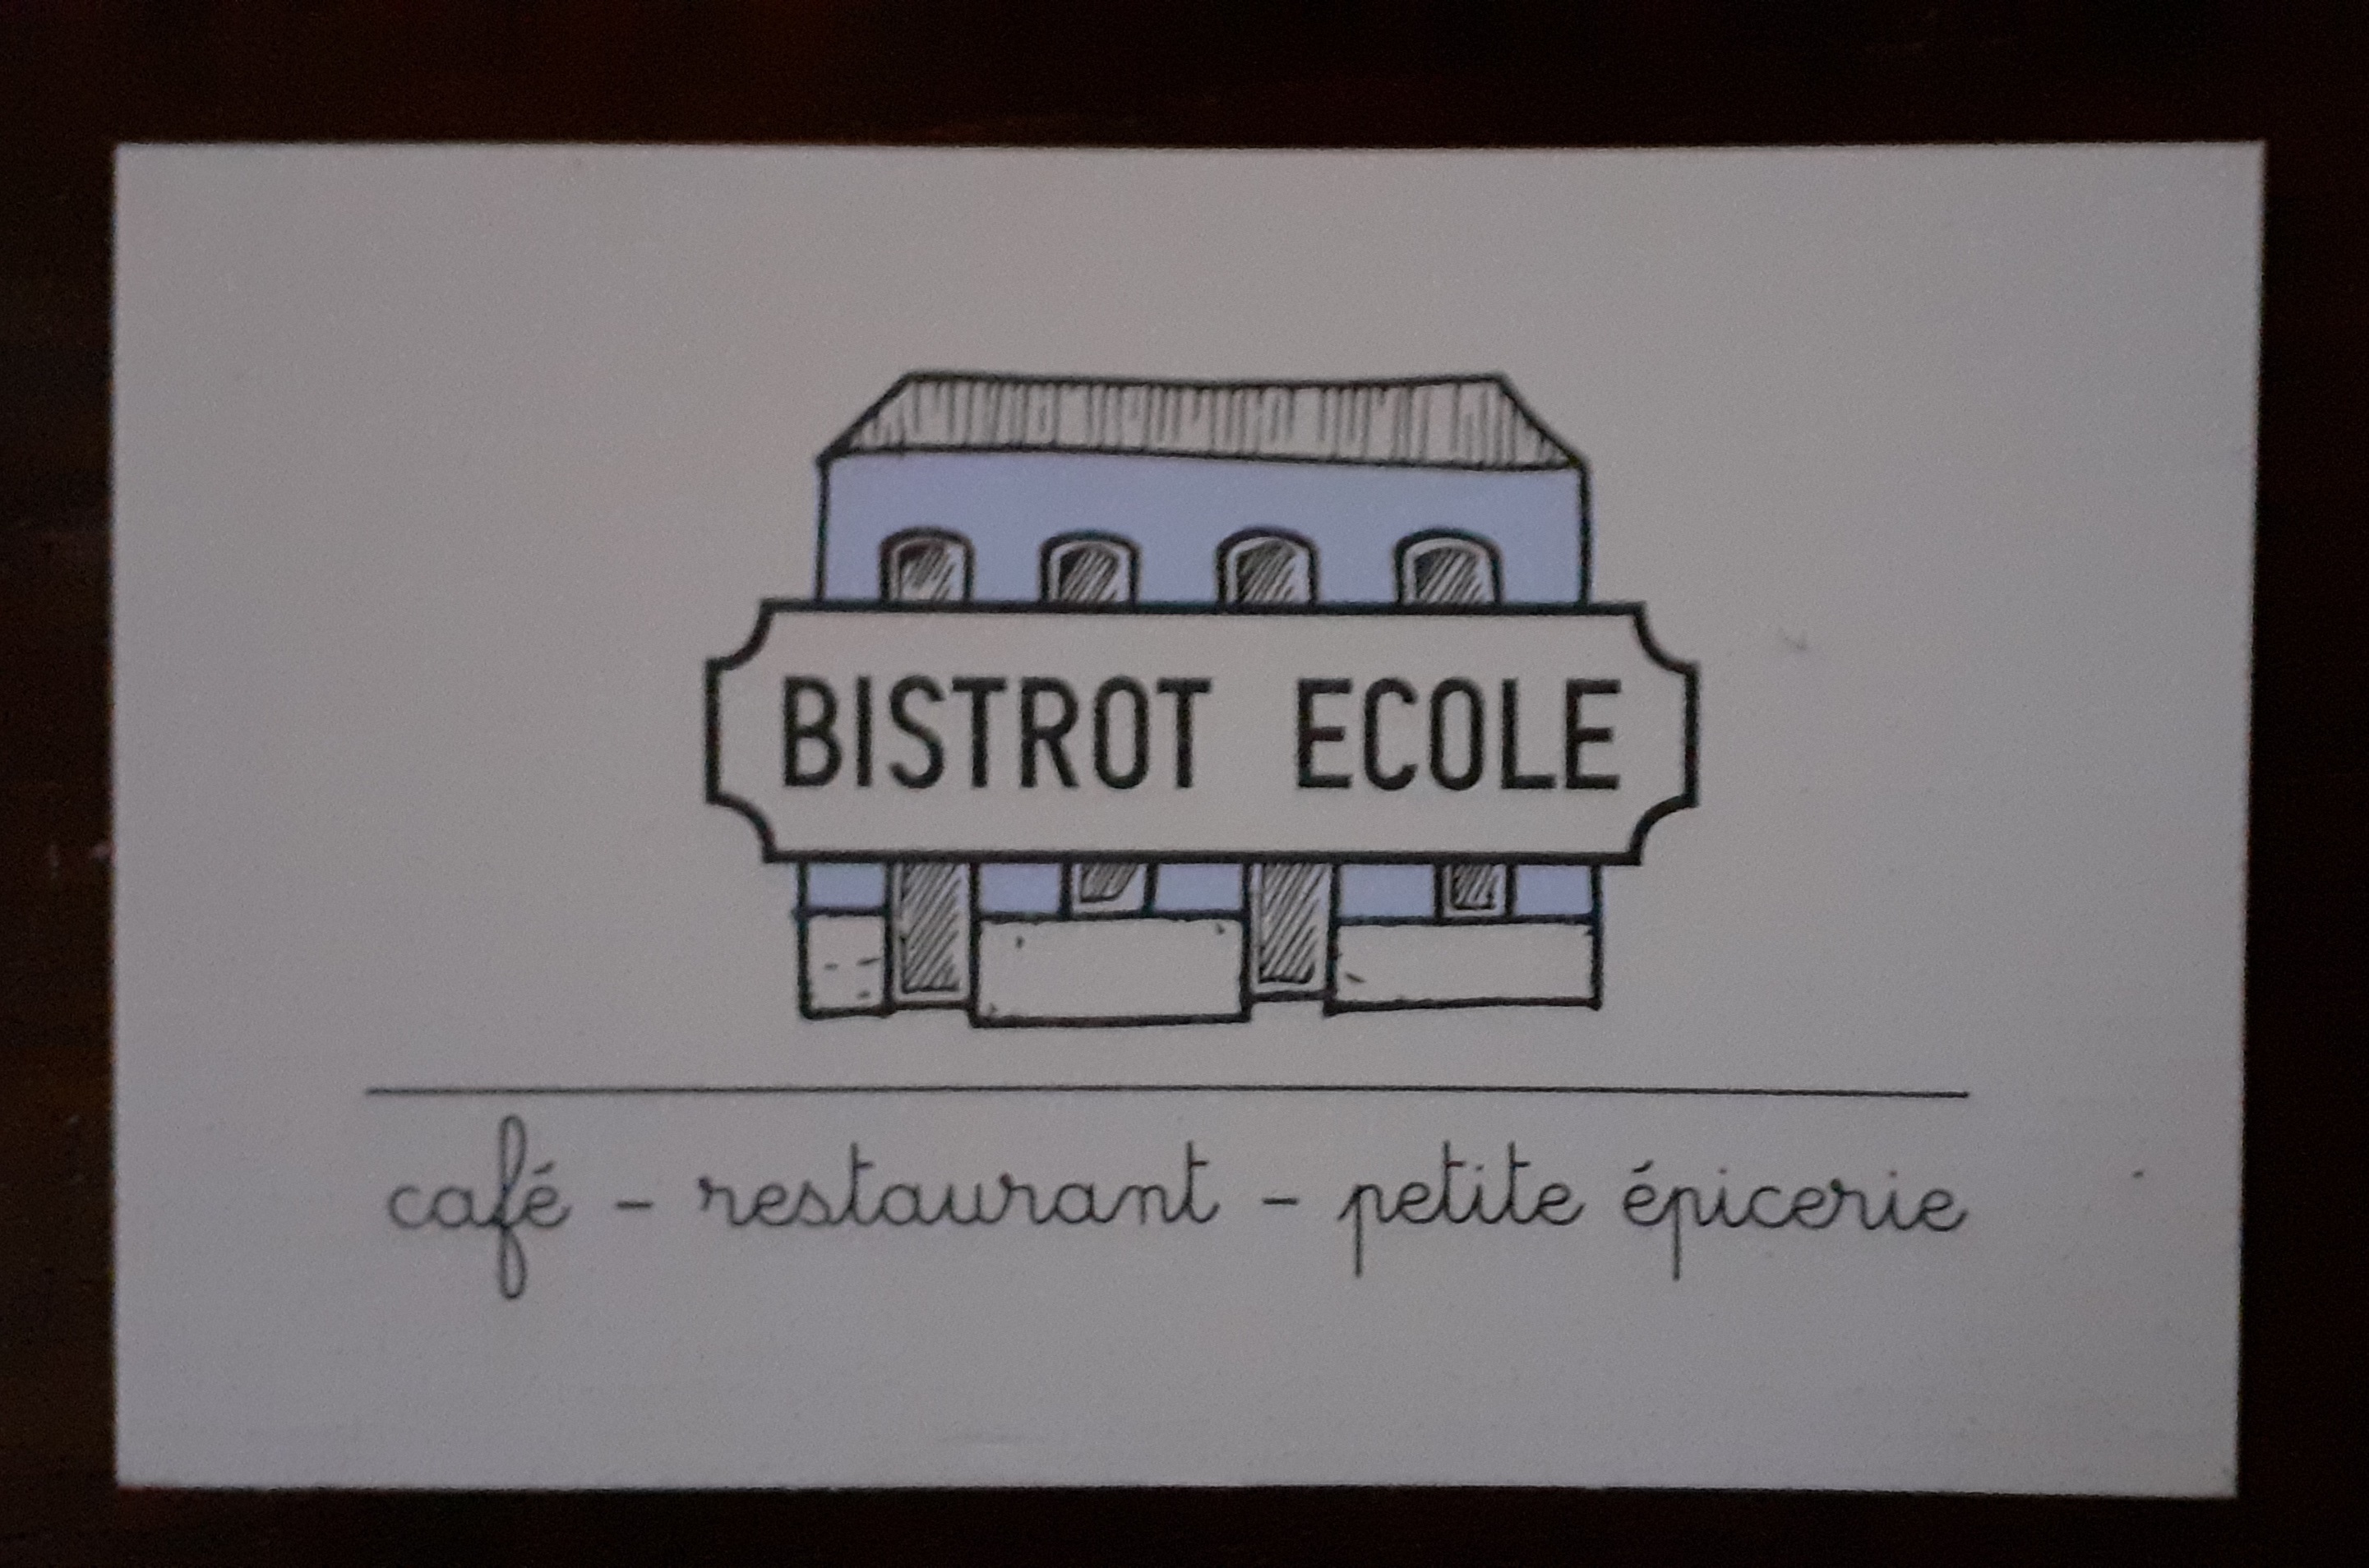 BISTROT ECOLE
café - restaurant - petite épicerie